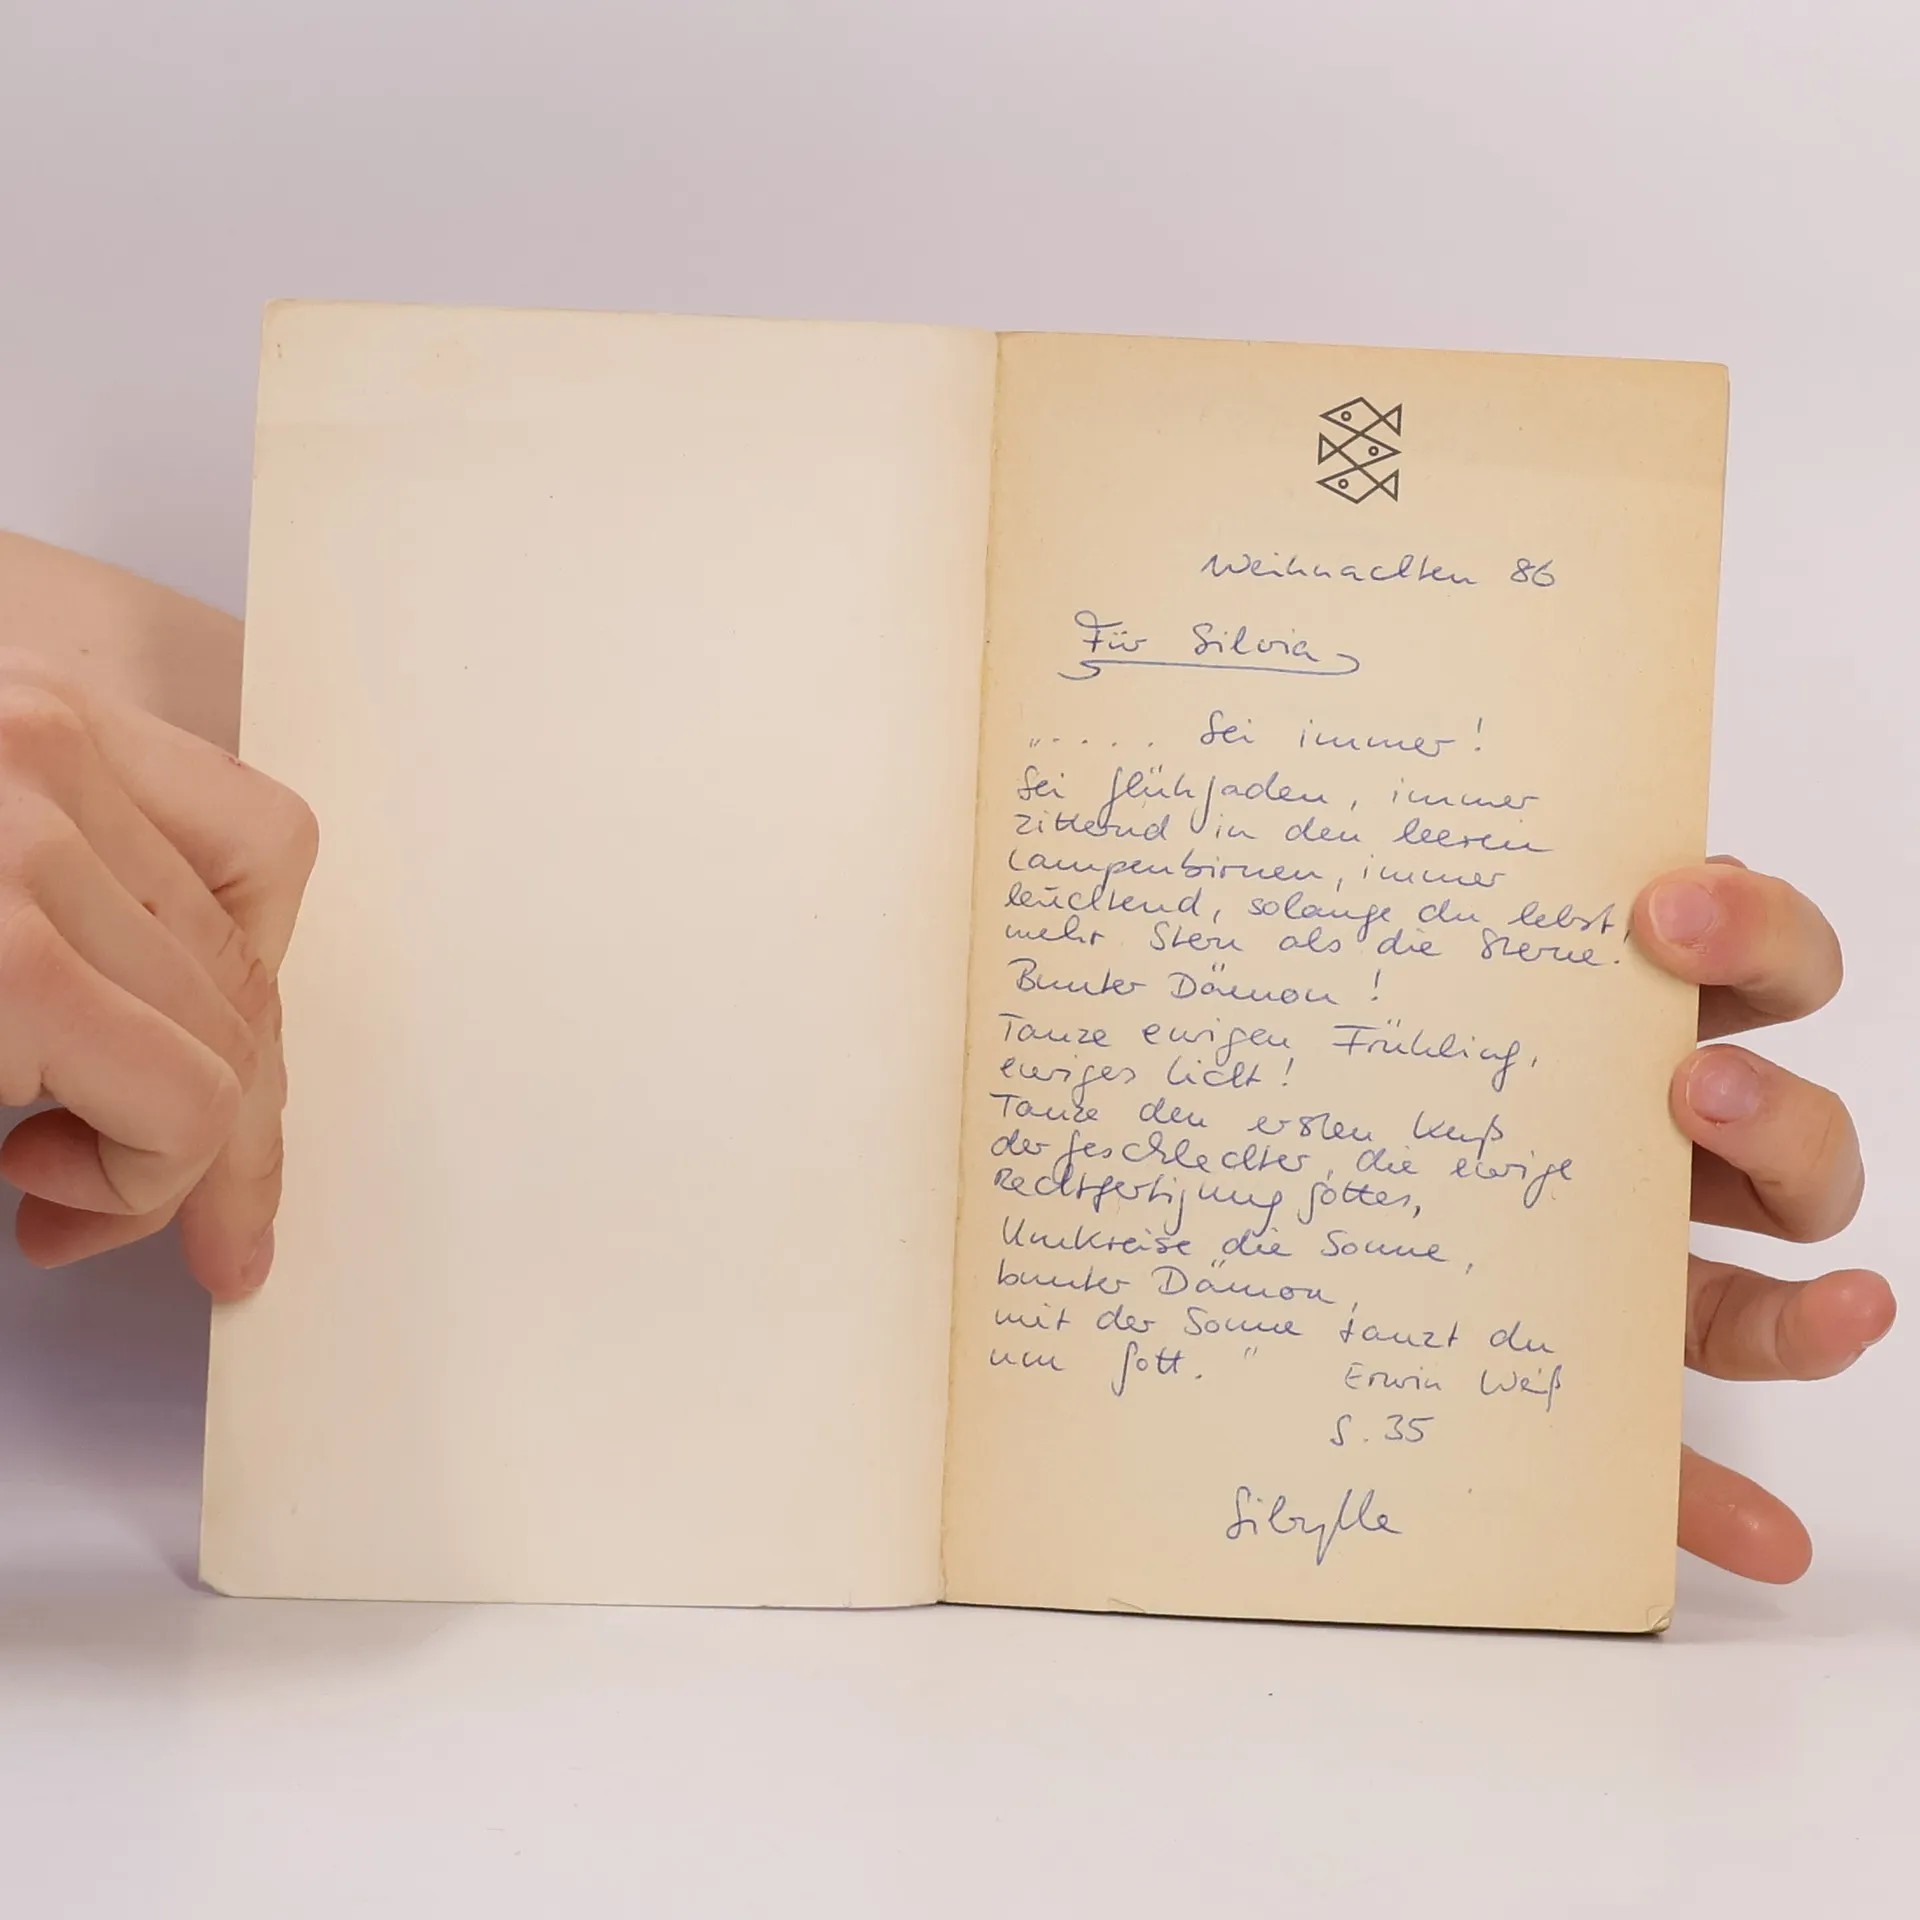 Weihnachten 86
Für Silvia
".... Sei immer!
Sei Glühfaden, immer
zitternd in den leeren
Lampenbirnen, immer
leuchtend, solange du lebst,
mehr Stern als die Sterne!
Bunter Dämon!
Tanze ewigen Frühling,
ewiges Licht!
Tanze den ersten Kuß
der Geschlechter, die ewige
Rechtfertigung Gottes,
Umkreise die Sonne,
bunter Dämon,
mit der Sonne tanzt du
um Gott."
Erwin Weiß
S. 35
Sibylle